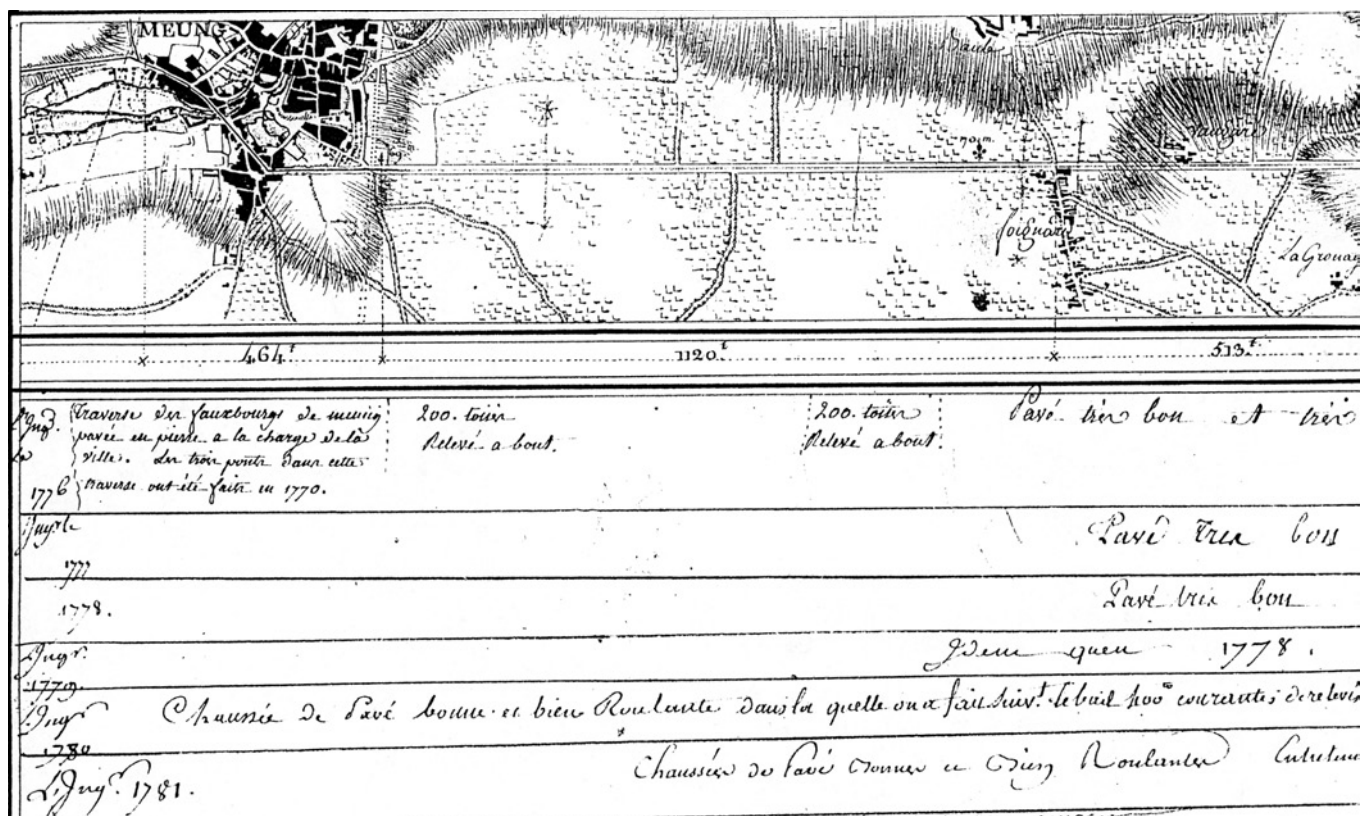 MEUNG
70.m.
La Grouay
464.t
1120.t
513.t
Traverse des fauxbourgs de meung
pavée en pierre a la charge de la
ville. Les trois ponts dans cette
traverse ont été faits en 1770.
200. toises
Relevé a bout.
200. toises
Relevé a bout.
Pavé très bon et très
1776
Pavé tres bon
1777
1778.
Pavé tres bon
Ingr.
1779.
Idem quen 1778.
Ingr
1780
Chaussée de Pavé bonne et bien Roulante dans la quelle on a fait suiv.t le bail courantes de relevés
L'Ingr. 1781.
Chaussées de Pavé bonnes et bien Roulantes